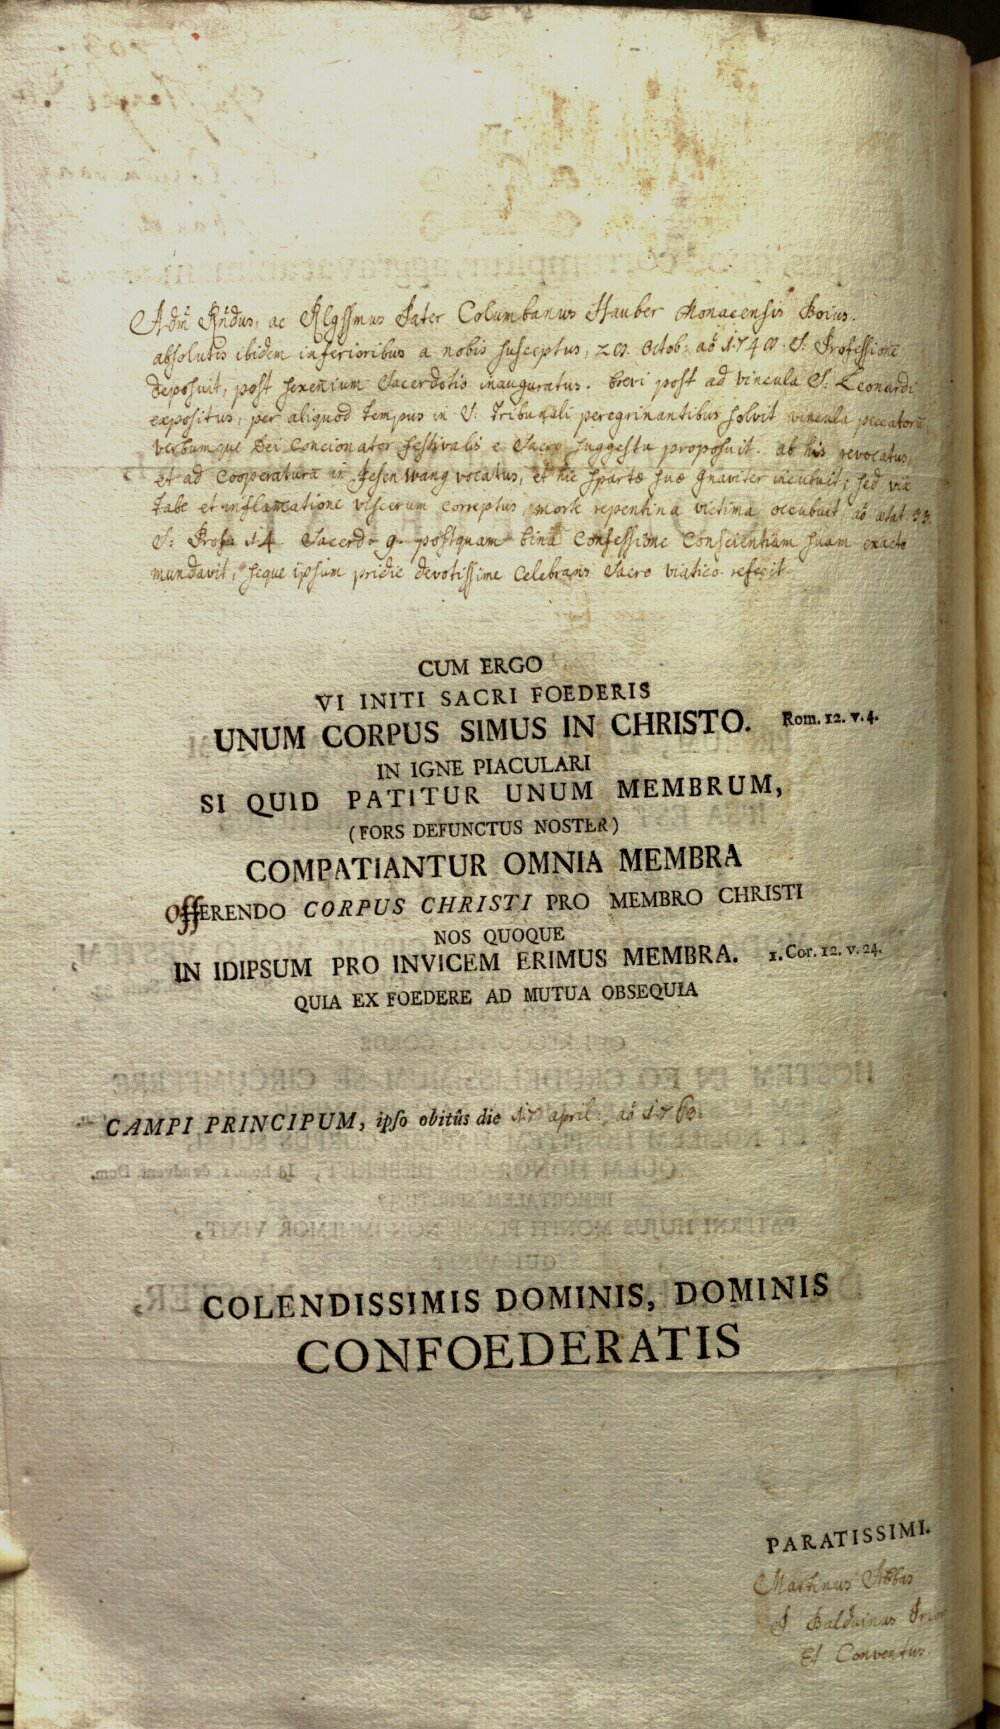 Adm̃ Rñdus, ac Rlgssmus Pater Columbanus Hauber Monacensis Boius.
absolutis ibidem inferioribus a nobis susceptus, Octob: aõ S. Professionẽ
deposuit, post sexeñium Sacerdotis inauguratus. brevi post ad vincula S. Leonardi
expositus, per aliquod tempus in S. Tribunali peregrinantibus solvit vincula peccatorũ
verbumque Dei Concionator festivalis e Sacro suggestu proposuit. ab his revocatus,
et ad Cooperaturã in Jesenwang vocatus, et hic spartæ suæ gnaviter incubuit; sed vix
tabe et inflamatione viscerum correptus, morte repentina victima occubuit, aõ ætat. 33.
S: Prof: 14. Sacerd: 9. postquam bina Confessione Conscientiam suam exacte
mundavit, seque ipsum pridie devotissime Celebrans Sacro viatico refecit.
CUM ERGO
VI INITI SACRI FOEDERIS
UNUM CORPUS SIMUS IN CHRISTO. Rom. 12. v. 4.
IN IGNE PIACULARI
SI QUID PATITUR UNUM MEMBRUM,
(FORS DEFUNCTUS NOSTER)
COMPATIANTUR OMNIA MEMBRA
OffERENDO CORPUS CHRISTI PRO MEMBRO CHRISTI
NOS QUOQUE
IN IDIPSUM PRO INVICEM ERIMUS MEMBRA. 1. Cor. 12. v. 24.
QUIA EX FOEDERE AD MUTUA OBSEQUIA
CAMPI PRINCIPUM, ipso obitûs die 17 april: aõ
COLENDISSIMIS DOMINIS, DOMINIS
CONFOEDERATIS
PARATISSIMI.
Martinus Abbas
P Balduinus Prior
Et Conventus.